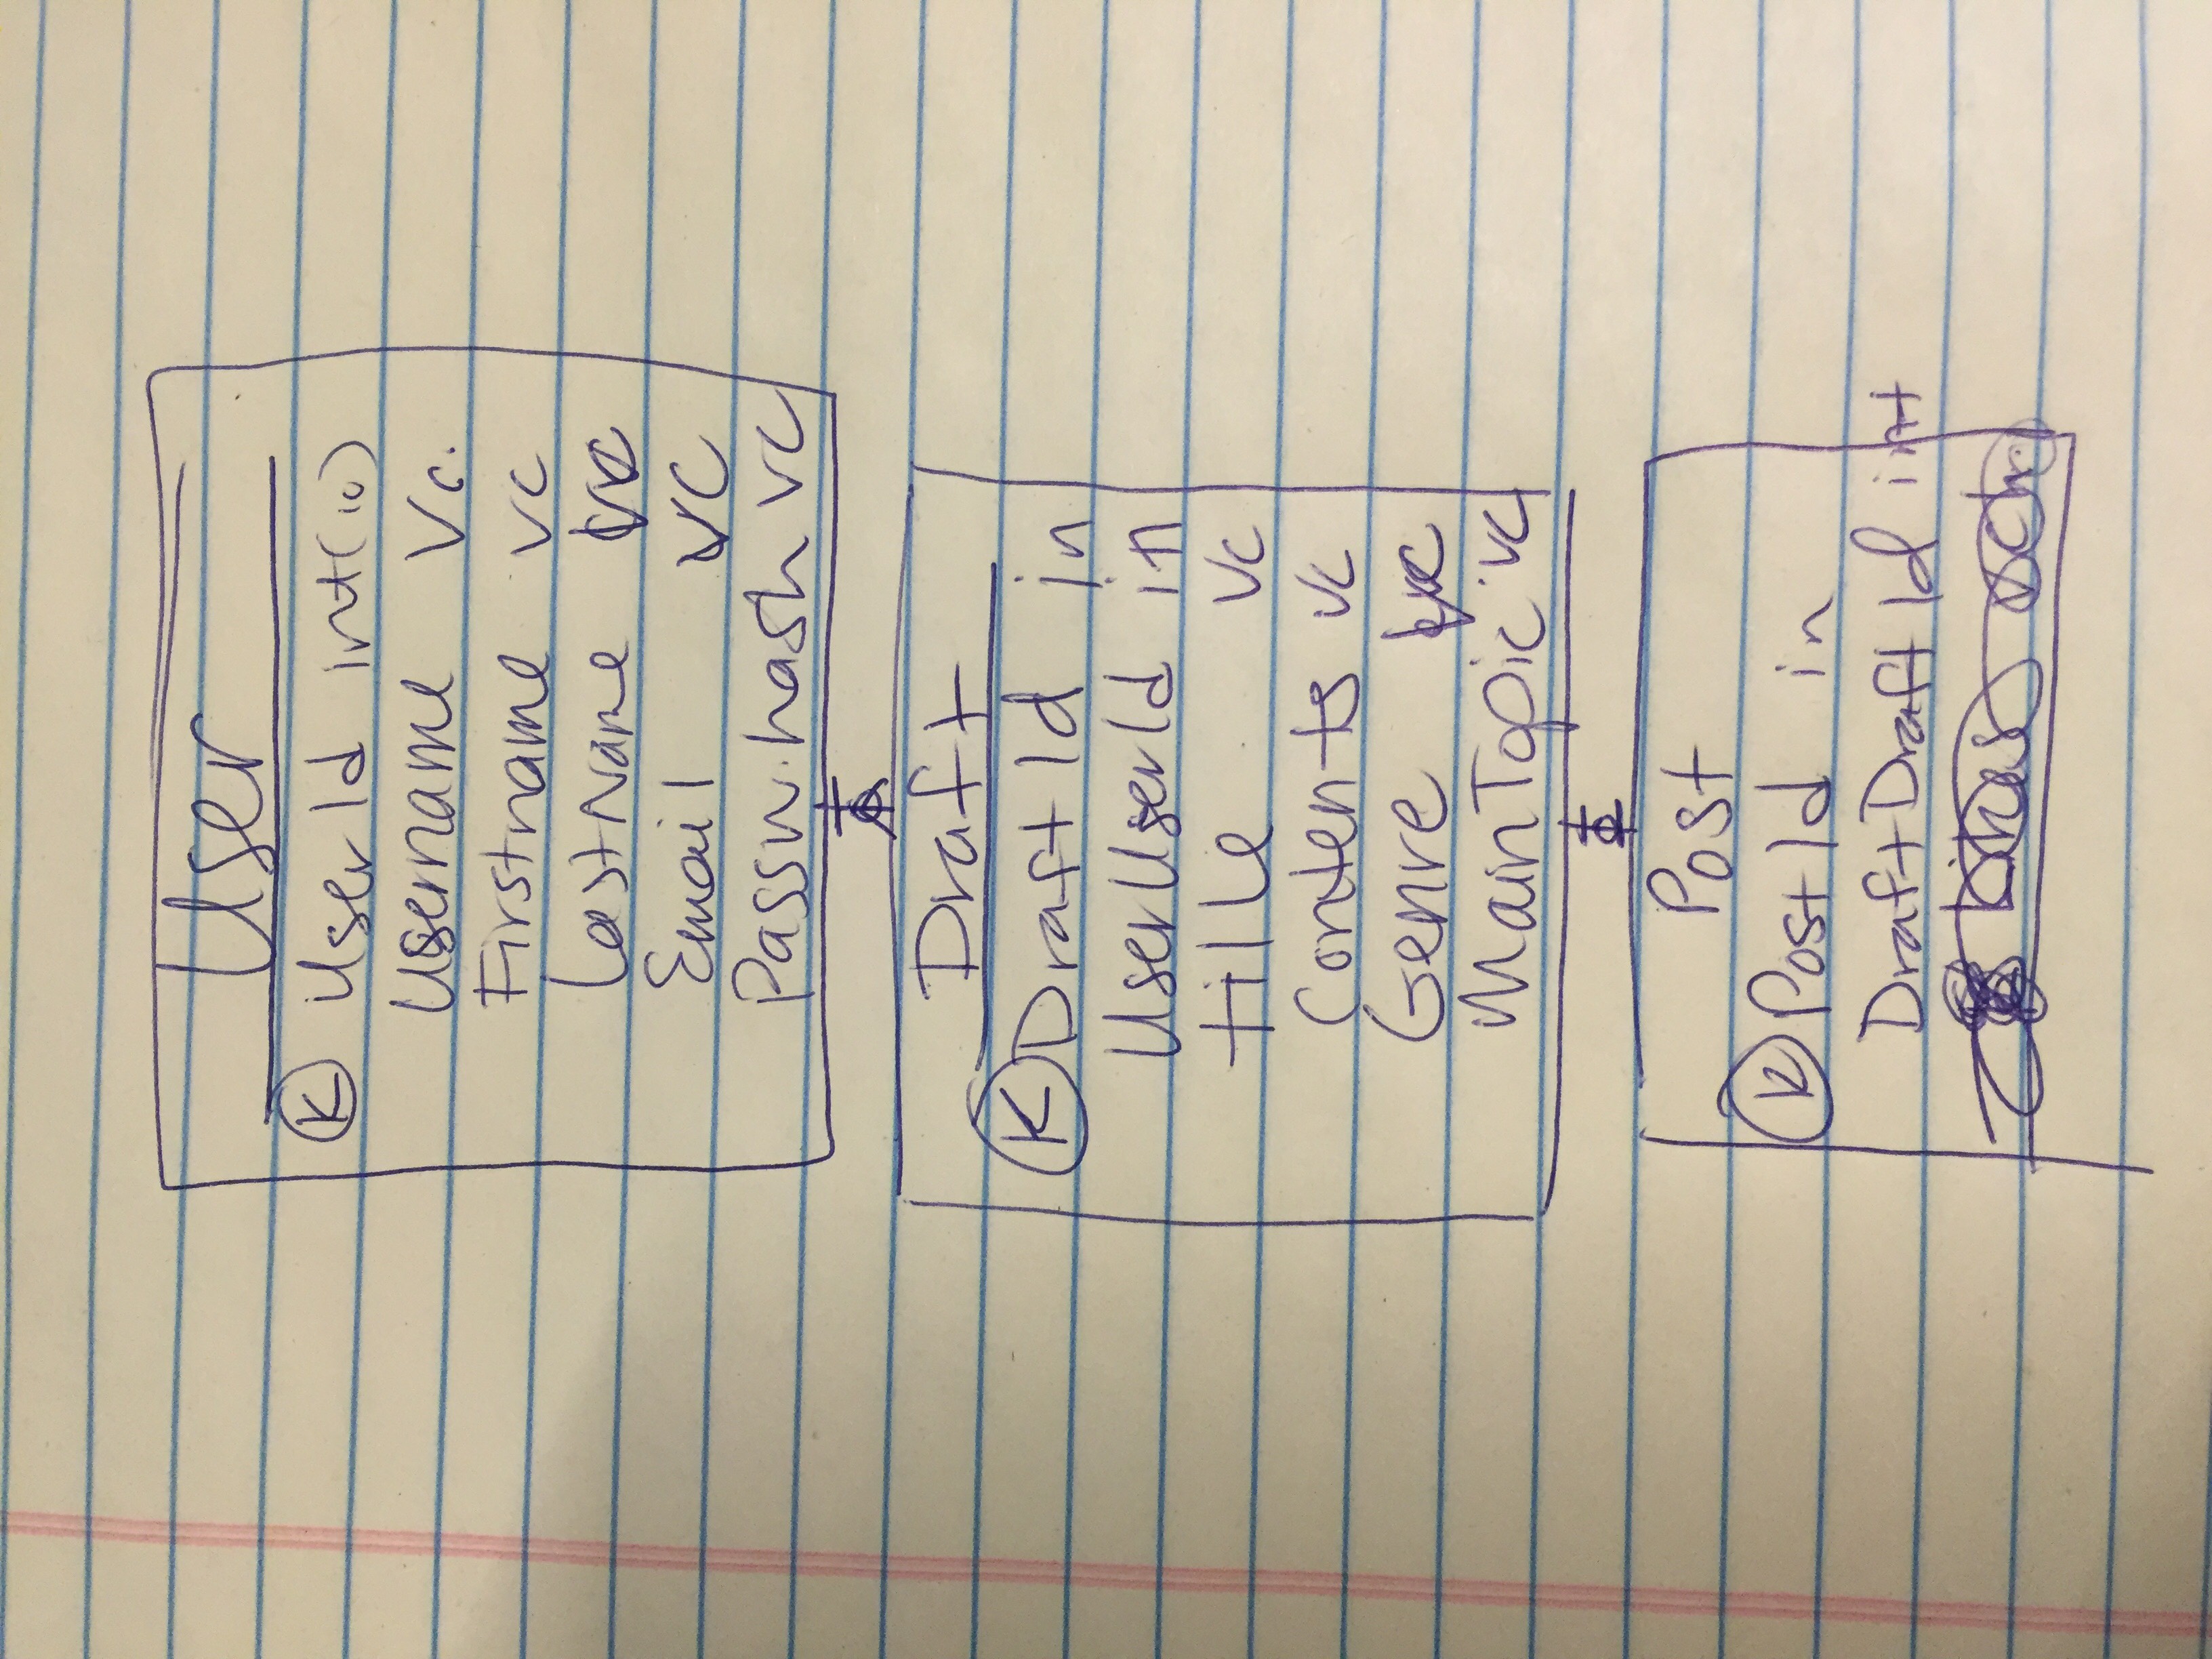 User
K UserId int(10)
Username Vc.
Firstname VC
LastName VC
Email VC
Passw.hash VC
Draft
K DraftId in
UserUserId in
title Vc
Contents VC
Genre VC
MainTopic VC
Post
K PostId in
DraftDraftId int
Likes